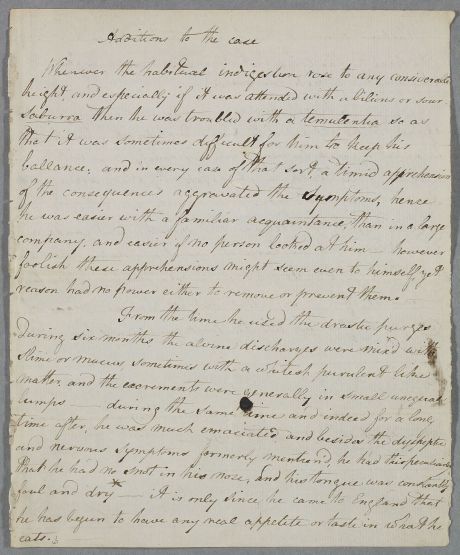 Additions to the case
Whenever the habitual indigestion rose to any considerable
height and especially if it was attended with a bilious or sour
Saburra then he was troubled with a temulentia so as
that it was sometimes difficult for him to keep his
ballance; and in every case of that sort, a timid apprehension
of the consequences aggravated the symptoms, hence
he was easier with a familiar acquaintance, than in a large
company, and easier if no person looked at him — however
foolish these apprehensions might seem even to himself, yet
reason had no power either to remove or prevent them.
From the time he used the drastic purges
during six months the alvine discharges were mix'd with
slime or mucus sometimes with a witesh purulent like
matter, and the excrements were generally in small unequal
lumps — during the same time and indeed for a long
time after, he was much emaciated, and besides the dyspeptic
and nervous symptoms formerly mention'd, he had this peculiarity
that he had no snot in his nose, and his tongue was constantly
foul and dry * — it is only since he came to England that
he has begun to have any real appetite or taste in what he
eats.